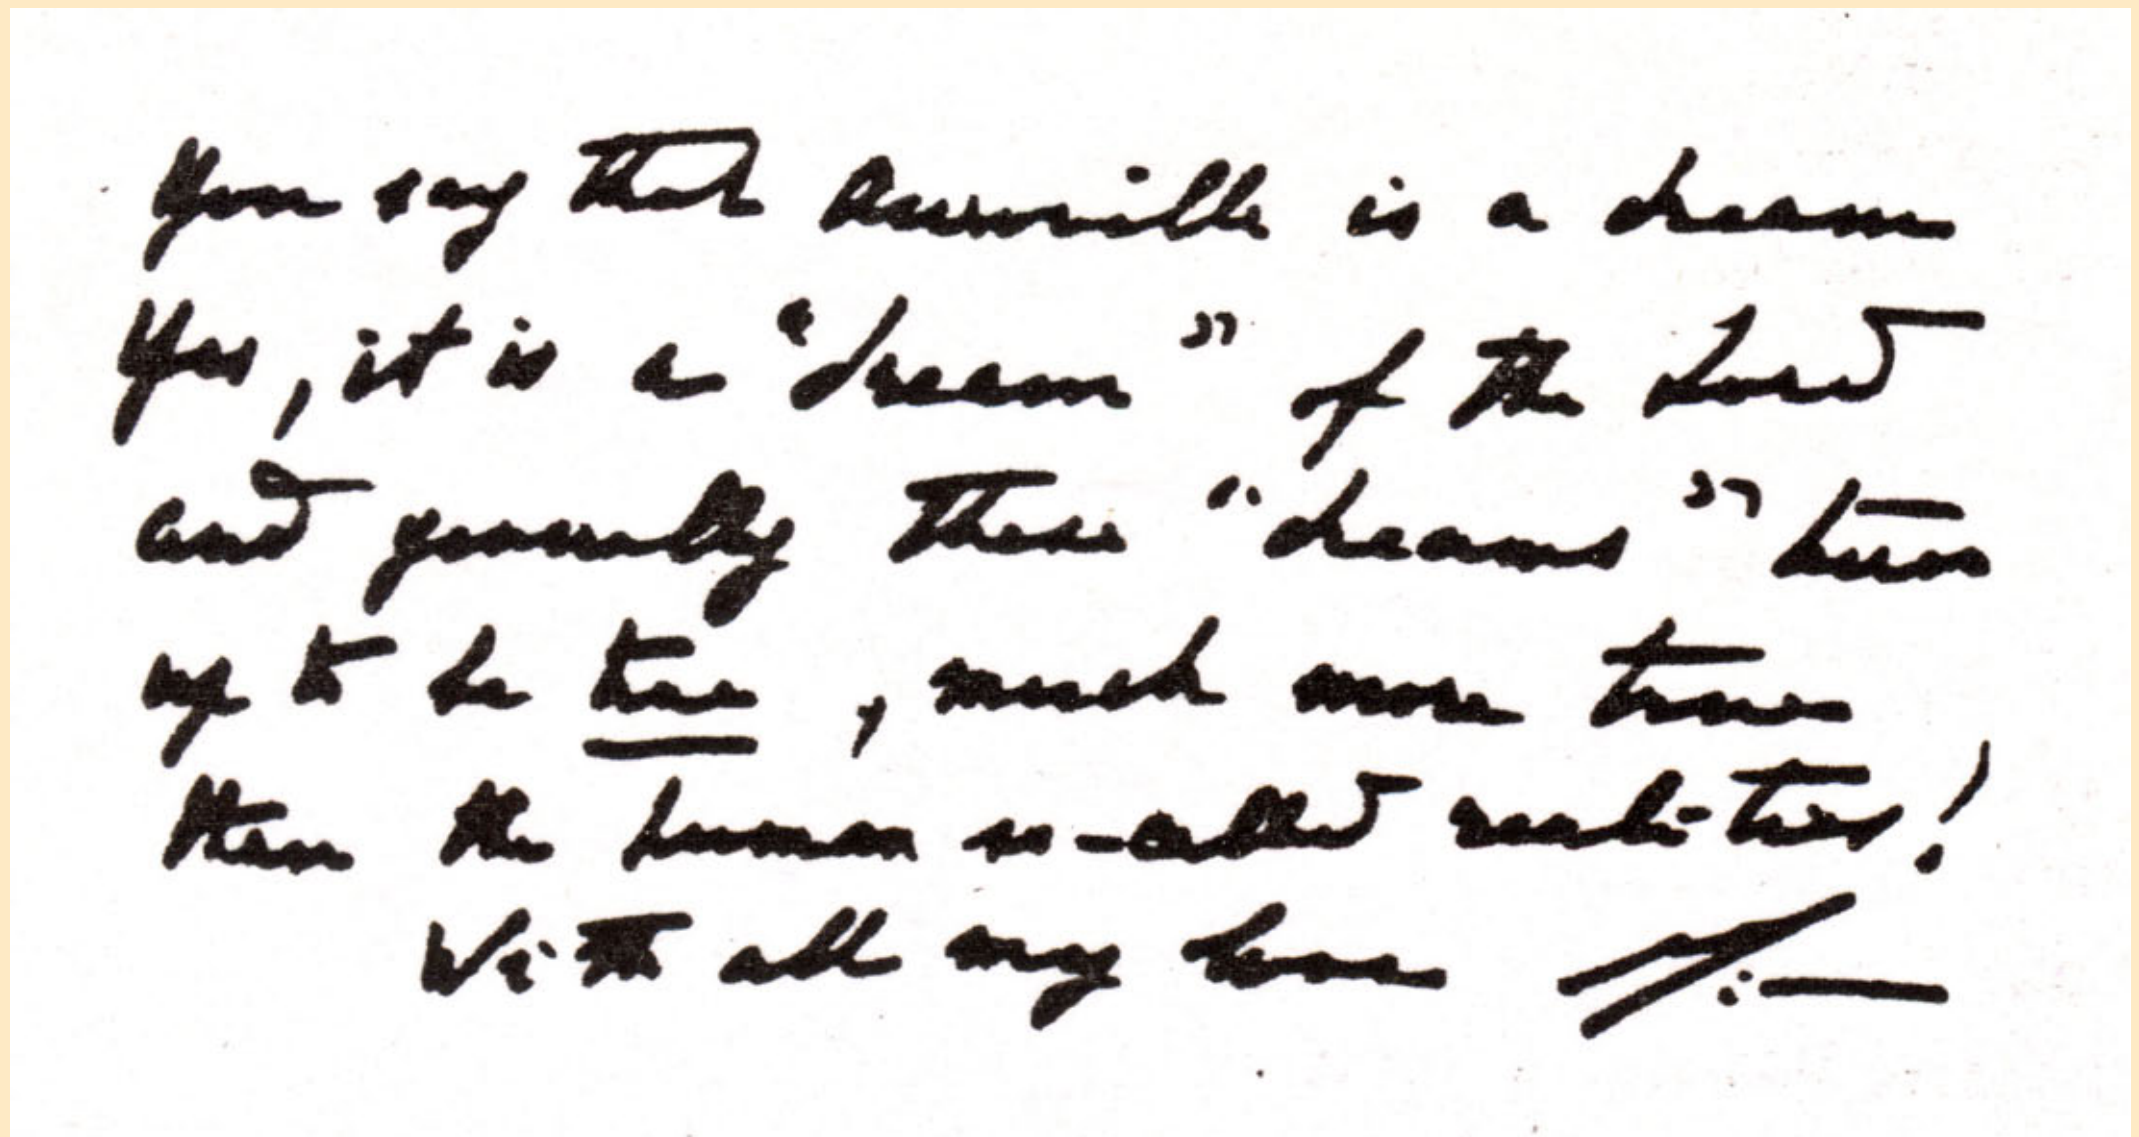 You say that Auroville is a dream
Yes, it is a "dream" of the Lord
and generally these "dreams" turn
up to be true, much more true
than the human so-called realities!
With all my love